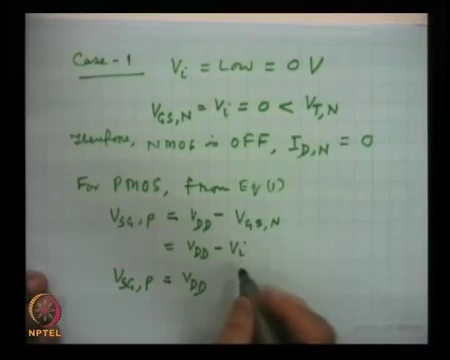 Case-1 Vi = Low = 0 V
VGS,N = Vi = 0 < VT,N
Therefore, NMOS is OFF, ID,N = 0
For PMOS, from Eq(1)
VSG,P = VDD - VGS,N
= VDD - Vi
VSG,P = VDD
NPTEL